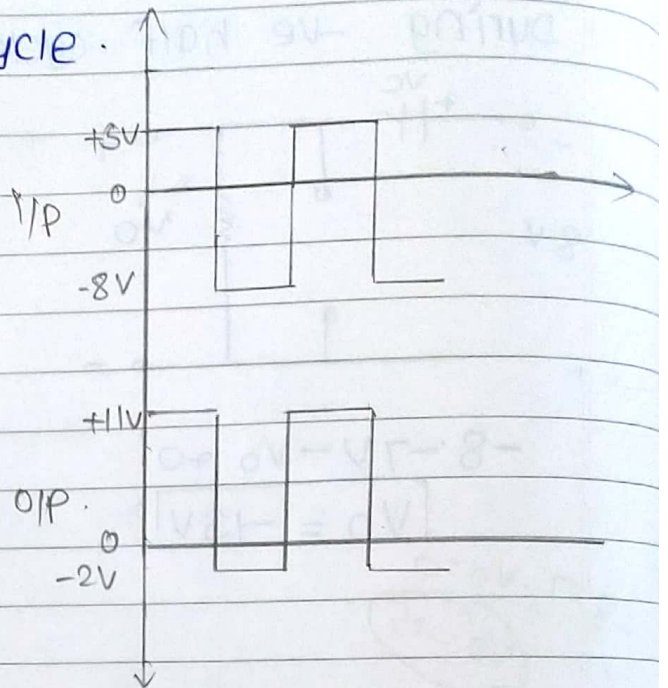 ycle.
+5V
0
I/P
-8V
+11V
O/P.
0
-2V